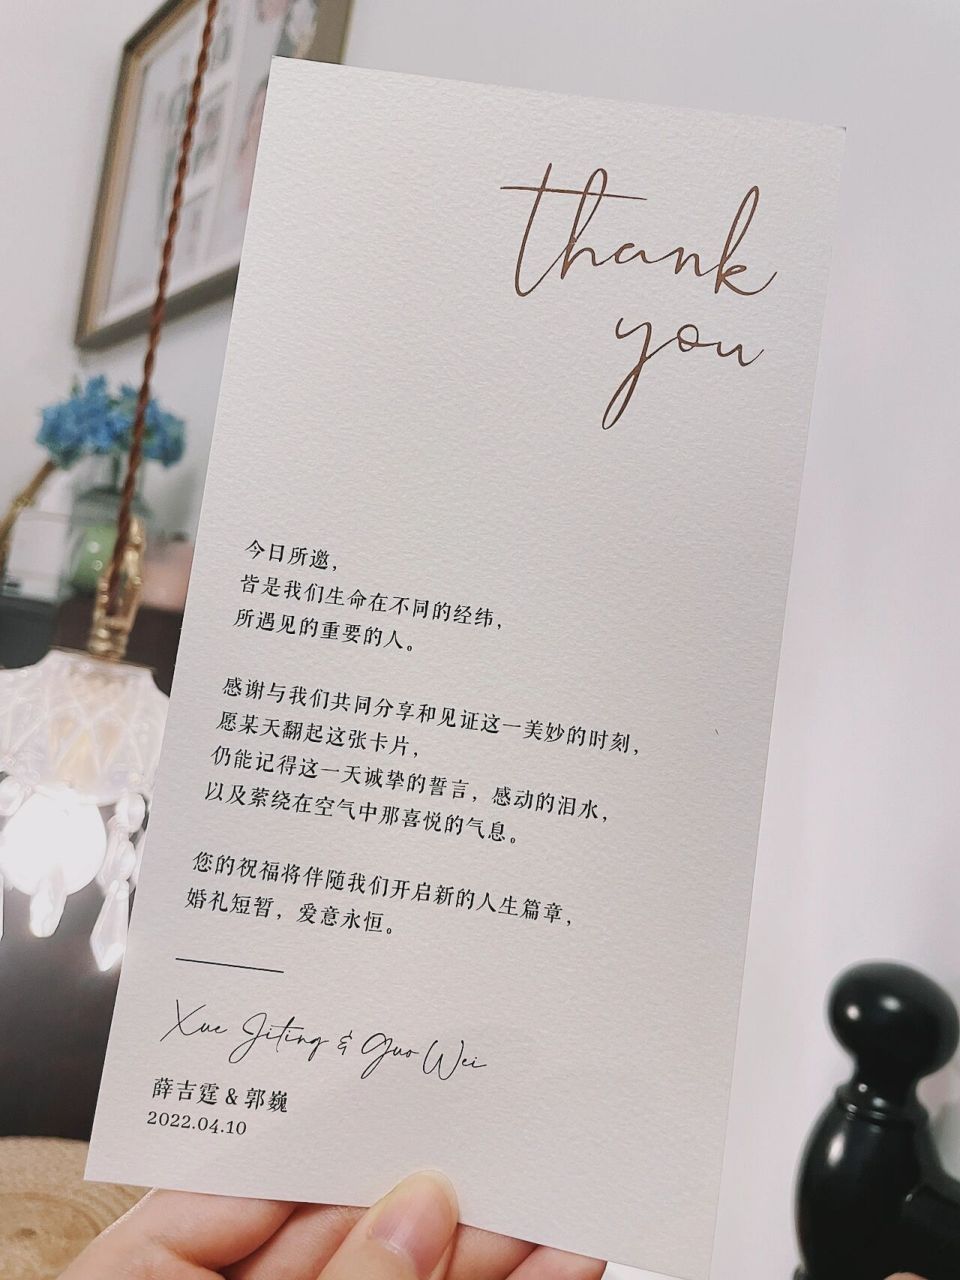 thank
you
今日所邀，
皆是我们生命在不同的经纬，
所遇见的重要的人。
感谢与我们共同分享和见证这一美妙的时刻，
愿某天翻起这张卡片，
仍能记得这一天诚挚的誓言，感动的泪水，
以及萦绕在空气中那喜悦的气息。
您的祝福将伴随我们开启新的人生篇章，
婚礼短暂，爱意永恒。
Xue Jiting & Guo Wei
薛吉霆 & 郭巍
2022.04.10